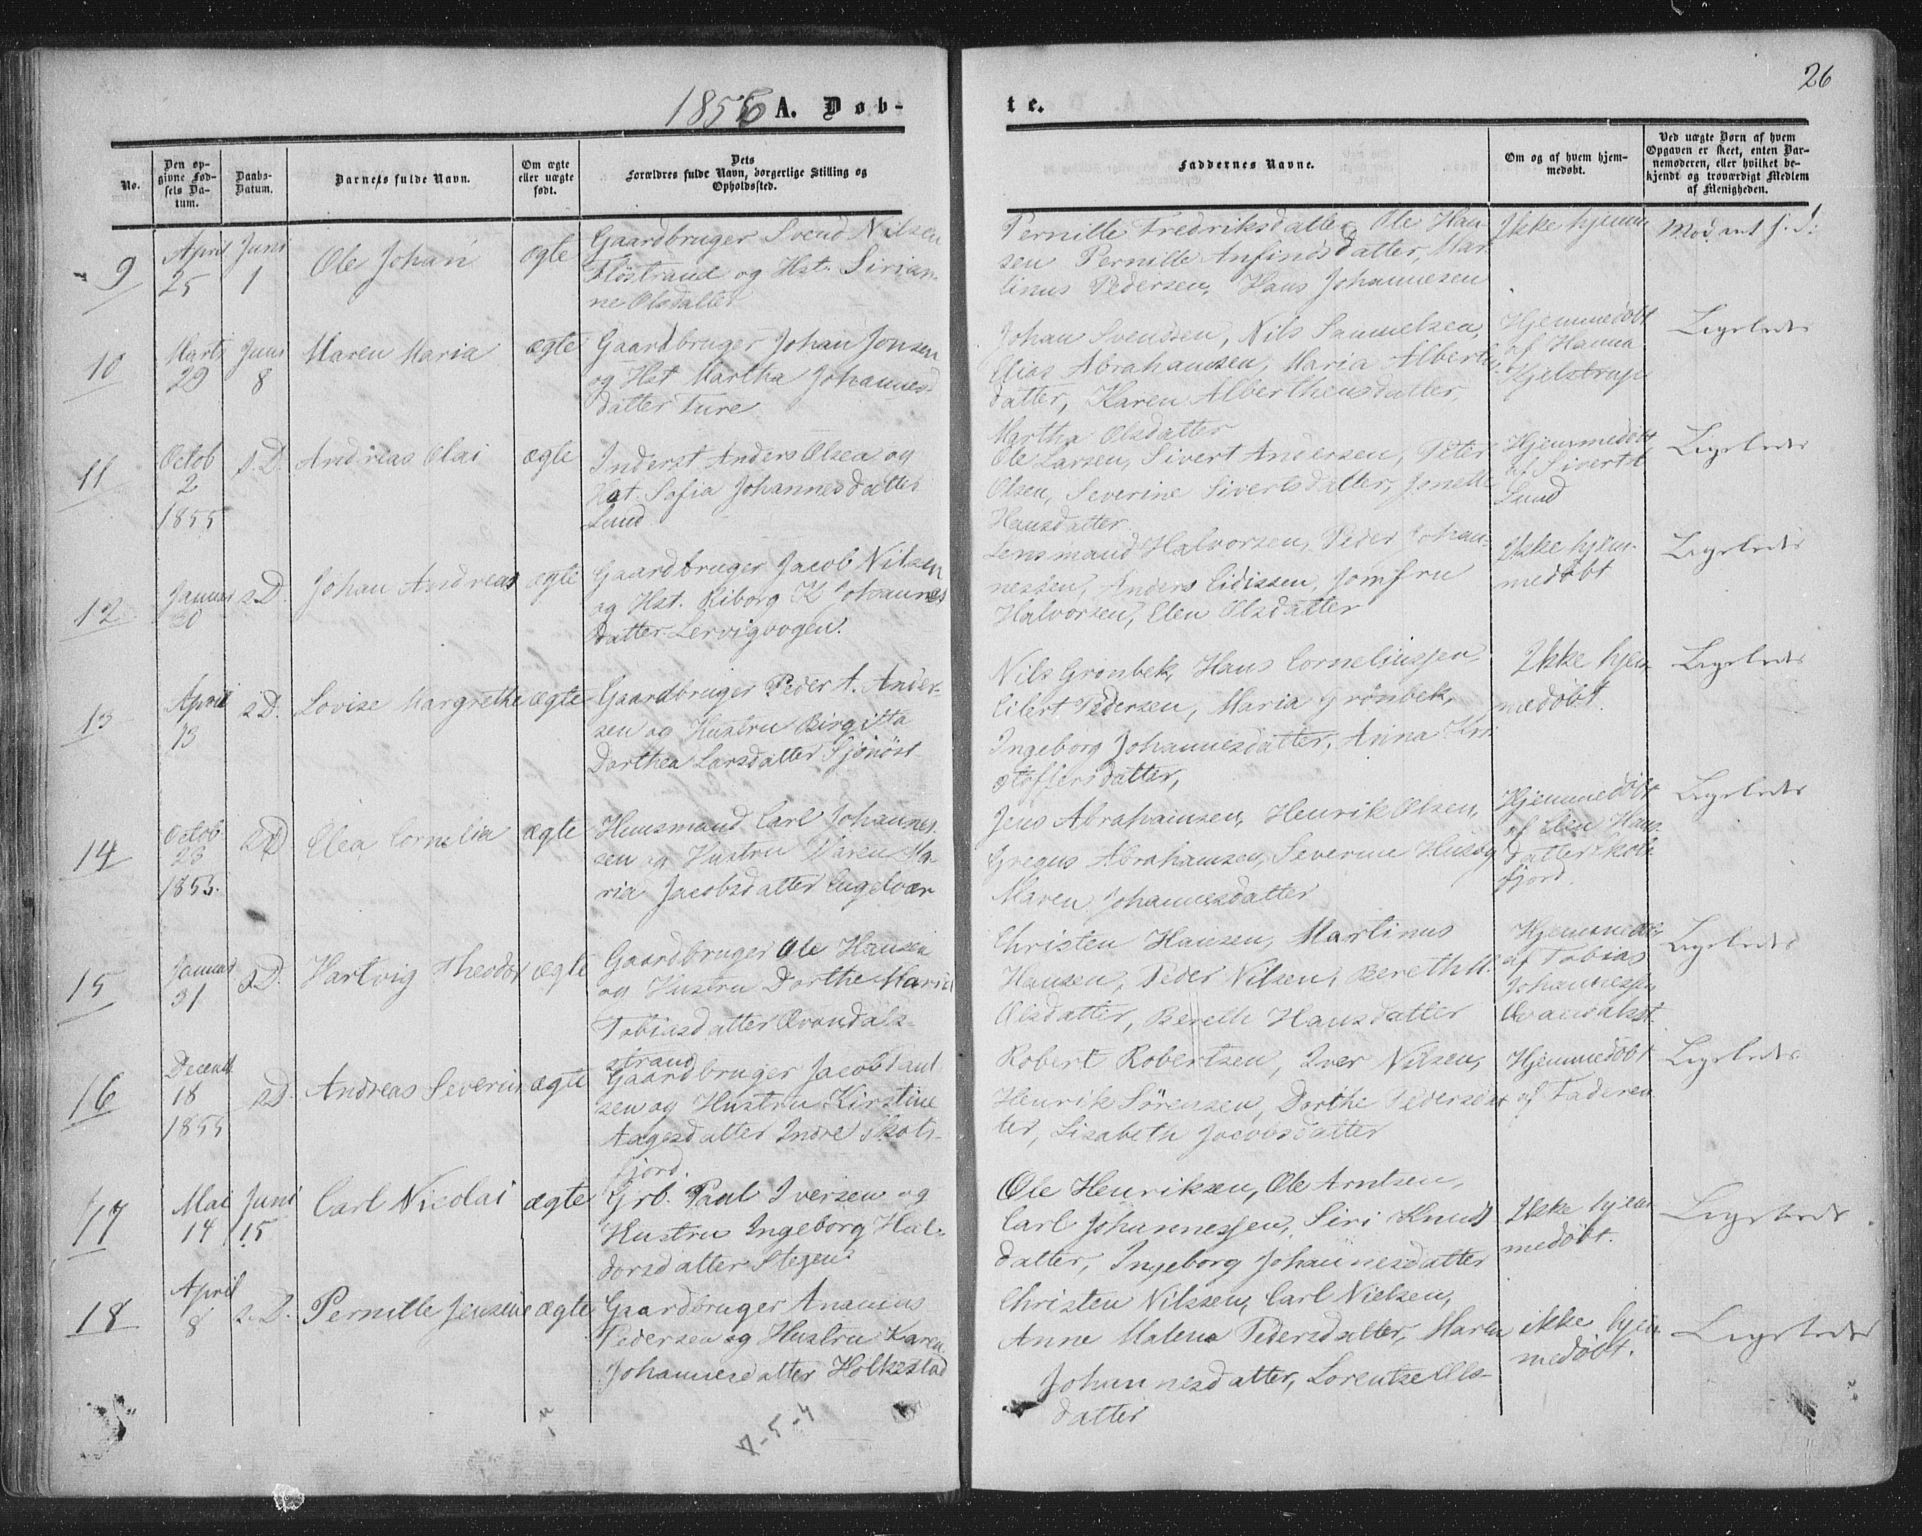 26
1856 A. Døb-
te.
No.
Den op-
givne Fød-
sels Da-
tum.
Daabs-
Datum.
Barnets fulde Navn.
Om ægte
eller uægte
født.
Dets
Forældres fulde Navn, borgerlige Stilling og
Opholdssted.
Faddernes Navne.
Om og af hvem hjem-
medøbt.
Ved uægte Børn af hvem
Opgaven er skeet, enten Bar-
nemoderen, eller hvilket be-
kjendt og troværdigt Medlem
af Menigheden.
9
April
25
Juni
1
Ole Johan
ægte
Gaardbruger Svend Nilsen
Flöstrand og Hst. Sirian-
ne Olsdatter
Pernille Fredriksdatter, Ole Han
sen Pernille Anfindsdatter, Mar
tinus Pedersen, Hans Johannesen
Ikke hjem
10
Marts
29
Juni
8
Maren Maria
ægte
Gaardbruger Johan Jonsen
og Hst Martha Johannes
datter Ture
Johan Svendsen, Nils Samuelsen,
Elias Abrahamsen, Maria Alberts
datter, Karen Alberthensdatter,
Martha Olsdatter
Hjemmedöbt
af Hanna
Kjelstrup
Ligeledes
11
Octob
2
1855
s. D.
Andreas Olai
ægte
Inderst Anders Olsen og
Hst. Sofia Johannesdatter
Lund
Ole Larsen, Sivert Andersen, Peter
Olsen, Severine Sivertsdatter, Jonette
Hansdatter
Hjemmedöbt
af Sivert
Lund
Ligeledes
12
Januar
30
s D.
Johan Andreas
ægte
Gaardbruger Jacob Nilsen
og Hst. Riborg K Johannes
datter Lervigvogen.
Lensmand Halvorsen, Peder Johan-
nessen, Anders Eidissen, Jomfru
Halvorsen, Elen Olsdatter
Ikke hjem-
medöbt
Ligeledes
13
April
13
s D.
Lovise Margrethe
ægte
Gaardbruger Peder A. Ander-
sen og Hustru Birgitta
Dorthea Larsdatter Sjönöst
Nils Grönbek, Hans Corneliussen
Eilert Pedersen, Maria Grönbek,
Ingeborg Johannesdatter, Anna Kri
stoffersdatter,
Ikke hjem
medöbt.
Ligeledes
14
Octob
28
1855.
s D
Elea Cornelia
ægte
Huusmand Carl Johannes
sen og Hustru Maren Ma-
ria Jacobsdatter Engelvær
Jens Abrahamsen, Henrik Olsen,
Gregus Abrahamsen, Severine Husög
Maren Johannesdatter
Hjemmedöbt
af Elen Hans
datter Skots
fjord
Ligeledes
15
Januar
31
s D.
Hartvig Theodor
ægte
Gaardbruger Ole Hansen
og Hustru Dorthe Maria
Tobiasdatter Evendals-
strand
Christen Hansen, Martinus
Hansen, Peder Nilsen, Bereth M.
Olsdatter, Berethe Hansdatter
af Tobias
Johannessen
Ligeledes
16
Decemb
18
1855
s D.
Andreas Severin
ægte
Gaardbruger Jacob Paul
sen og Hustru Kirstine
Aagesdatter Indre Skots-
fjord.
Robert Robertsen, Iver Nilsen,
Henrik Sörensen, Dorthe Pedersdat
ter, Lisabeth Jacobsdatter
Hjemmedöbt
af Faderen
Ligeledes
17
Mai
14
Juni
15
Carl Nicolai
ægte
Grb. Paul Iversen og
Hustru Ingeborg Hal-
dorsdatter Stegen.
Ole Henriksen, Ole Arntsen,
Carl Johannessen, Siri Knuds
datter, Ingeborg Johannesdatter
Ikke hjem
medöbt.
Ligeledes
18
April
8
s. D.
Pernille Jensine
ægte
Gaardbruger Ananias
Pedersen og Hustru Karen
Johannesdatter Holkestad
Christen Nilssen, Carl Nielsen,
Anne Malena Pedersdatter, Maren
Johannesdatter, Lorentse Ols-
datter
ikke hjem
medöbt.
Ligeledes
7-5-4